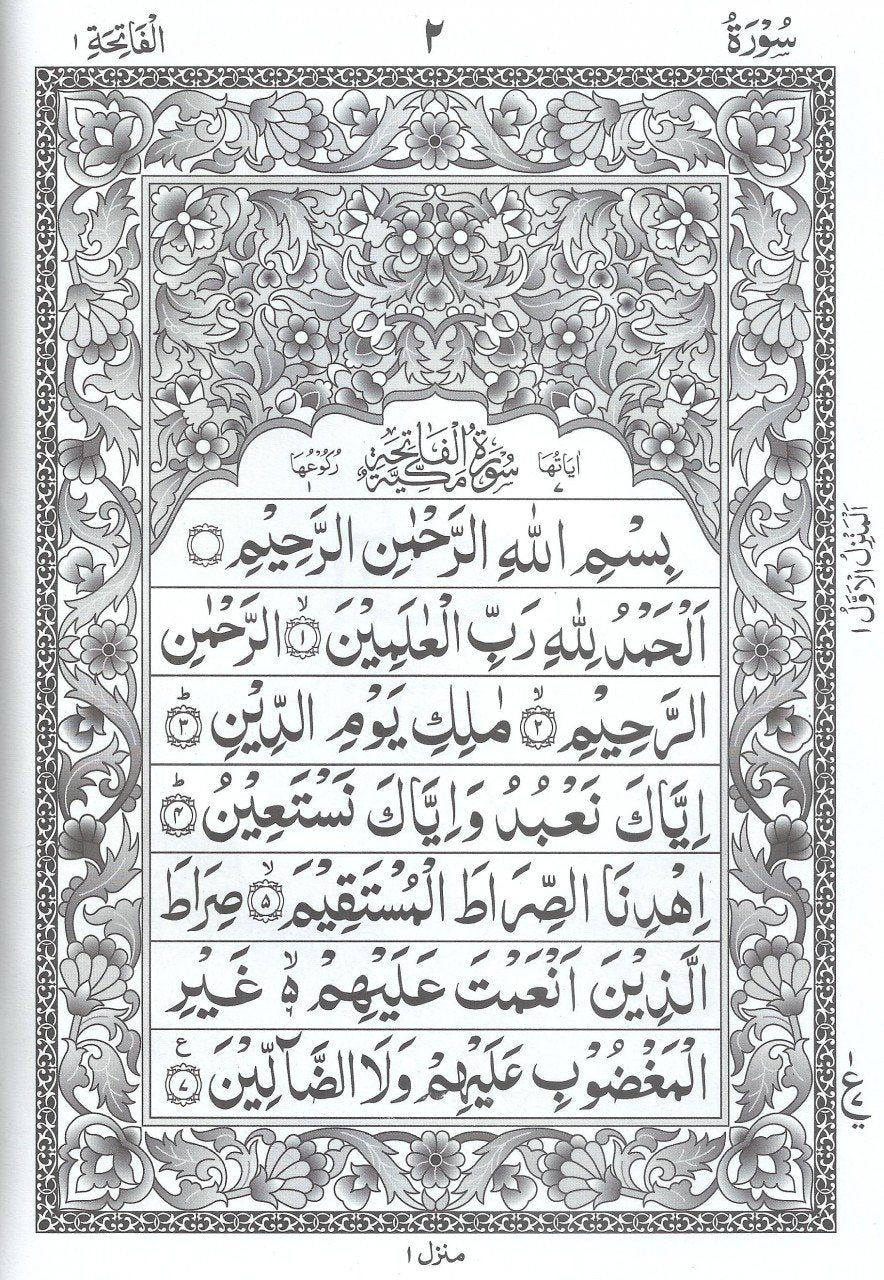 سُوْرَةُ ٢ اَلْفَاتِحَةِ ١
اٰيَاتُهَا ٧ سُوْرَةُ الْفَاتِحَةِ مَكِّيَّةٌ رُكُوْعُهَا ١
بِسْمِ اللّٰهِ الرَّحْمٰنِ الرَّحِيْمِ
اَلْحَمْدُ لِلّٰهِ رَبِّ الْعٰلَمِيْنَ ۙ﴿۱﴾ الرَّحْمٰنِ
الرَّحِيْمِ ۙ﴿۲﴾ مٰلِكِ يَوْمِ الدِّيْنِ ؕ﴿۳﴾
اِيَّاكَ نَعْبُدُ وَاِيَّاكَ نَسْتَعِيْنُ ؕ﴿۴﴾
اِهْدِنَا الصِّرَاطَ الْمُسْتَقِيْمَ ۙ﴿۵﴾ صِرَاطَ
الَّذِيْنَ اَنْعَمْتَ عَلَيْهِمْ ۙ۵ غَيْرِ
الْمَغْضُوْبِ عَلَيْهِمْ وَلَا الضَّآلِّيْنَ ﴿۷﴾ ع
اَلْمَنْزِلُ الْاَوَّلُ ١
١ ع ٧
منزل ١